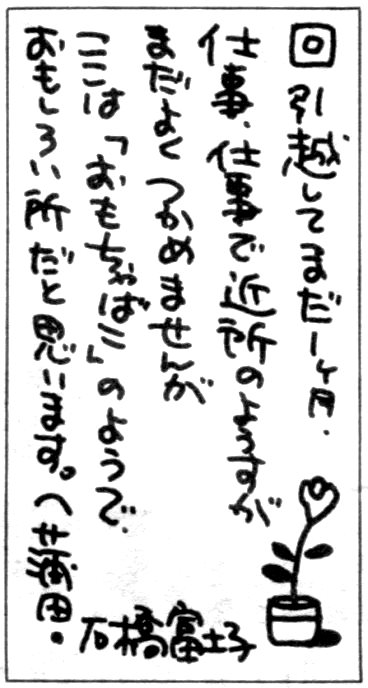 回 引越してまだ一ヶ月.
仕事、仕事で近所のようすが
まだよくつかめませんが
ここは「おもちゃばこ」のようで、
おもしろい所だと思います。(蒲田・
石橋富士子